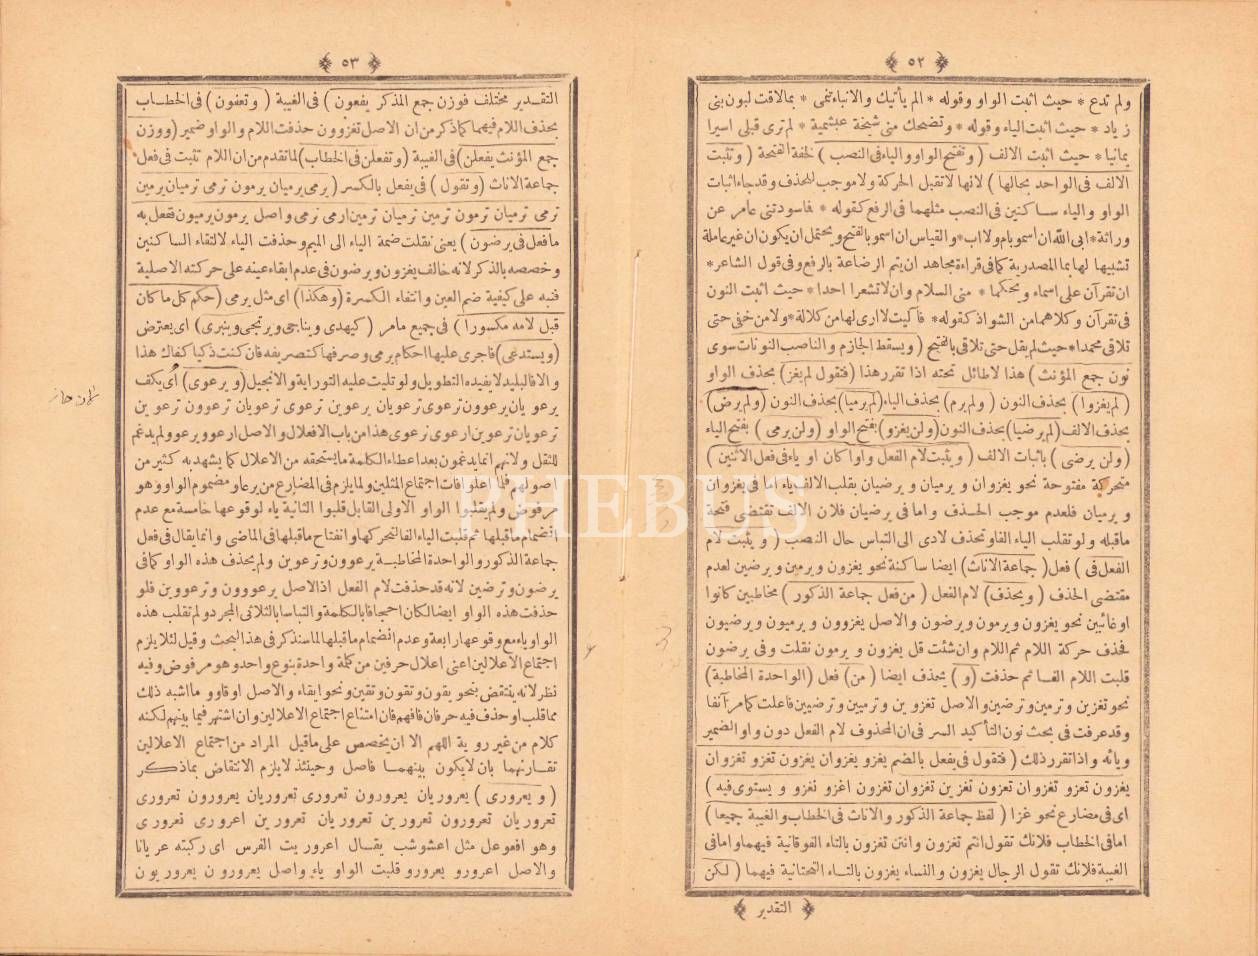 ﴿ ٥٢ ﴾
ولم تدع * حيث اثبت الواو وقوله * الم يأتيك والانباء تنمى * بمالاقت لبون بنى
زياد * حيث اثبت الياء وقوله * وتضحك منى شيخة عبشمية * لم ترى قبلى اسيرا
يمانيا * حيث اثبت الالف ( وتفتح الواو والياء فى النصب ) لخفة الفتحة ( وتثبت
الالف فى الواحد بحالها ) لانها لا تقبل الحركة ولا موجب للحذف وقد جاء اثبات
الواو والياء ساكنين فى النصب مثلهما فى الرفع كقوله * فاسودتنى عامر عن
وراثة * ابى الله ان اسمو بام ولا اب * والقياس ان اسمو بالفتح ويحتمل ان يكون ان غير عاملة
تشبيها لها بما المصدرية كما فى قراءة مجاهد ان يتم الرضاعة بالرفع وفى قول الشاعر *
ان تقرآن على اسماء ويحكما * منى السلام وان لا تشعرا احدا * حيث اثبت النون
فى تقرآن وكلاهما من الشواذ كقوله * فآليت لا ارثى لها من كلالة * ولا من حفى حتى
تلاقى محمدا * حيث لم يقل حتى تلاقى بالفتح ( ويسقط الجازم والناصب النونات سوى
نون جمع المؤنث ) هذا لا طائل تحته اذا تقرر هذا ( فتقول لم يغز ) بحذف الواو
( لم يغزوا ) بحذف النون ( ولم يرم ) بحذف الياء ( لم يرميا ) بحذف النون ( ولم يرض )
بحذف الالف ( لم يرضيا ) بحذف النون ( ولن يغزو ) بفتح الواو ( ولن يرمى ) بفتح الياء
( ولن يرضى ) باثبات الالف ( ويثبت لام الفعل واوا كان او ياء فى فعل الاثنين )
متحركة مفتوحة نحو يغزوان و يرميان و يرضيان بقلب الالف ياء اما فى يغزوان
و يرميان فلعدم موجب الحذف و اما فى يرضيان فلان الالف تقتضى فتحة
ماقبله ولو تقلب الياء الفا وتحذف لادى الى التباس حال النصب ( و يثبت لام
الفعل فى ) فعل ( جماعة الاناث ) ايضا ساكنة نحو يغزون و يرمين و يرضين لعدم
مقتضى الحذف ( ويحذف ) لام الفعل ( من فعل جماعة الذكور ) مخاطبين كانوا
او غائبين نحو يغزون و يرمون و يرضون والاصل يغزوون و يرميون و يرضيون
فحذف حركة اللام ثم اللام وان شئت قل يغزون و يرمون نقلت وفى يرضون
قلبت اللام الفا ثم حذفت ( و ) يحذف ايضا ( من ) فعل ( الواحدة المخاطبة )
نحو تغزين وترمين وترضين والاصل تغزوين وترميين وترضيين فاعلت كما مر آنفا
وقد عرفت فى بحث نون التأكيد السر فى ان المحذوف لام الفعل دون واو الضمير
ويائه واذا تقرر ذلك ( فتقول فى يفعل بالضم يغزو يغزوان يغزون تغزو تغزوان
يغزون تغزو تغزوان تغزون تغزين تغزوان تغزون اغزو نغزو و يستوى فيه )
اى فى مضارع نحو غزا ( لفظ جماعة الذكور والاناث فى الخطاب والغيبة جميعا )
اما فى الخطاب فلانك تقول انتم تغزون وانتن تغزون بالتاء الفوقانية فيهما واما فى
الغيبة فلانك تقول الرجال يغزون والنساء يغزون بالتاء التحتانية فيهما ( لكن
﴿ التقدير ﴾
﴿ ٥٣ ﴾
التقدير مختلف فوزن جمع المذكر يفعون ) فى الغيبة ( وتفعون ) فى الخطاب
بحذف اللام فيهما كما ذكر من ان الاصل تغزوون حذفت اللام والواو ضمير ( ووزن
جمع المؤنث يفعلن ) فى الغيبة ( وتفعلن فى الخطاب ) لما تقدم من ان اللام تثبت فى فعل
جماعة الاناث ( وتقول ) فى يفعل بالكسر ( يرمى يرميان يرمون ترمى ترميان يرمين
ترمى ترميان ترمون ترمين ترميان ترمين ارمى نرمى واصل يرمون يرميون ففعل به
ما فعل فى يرضون ) يعنى نقلت ضمة الياء الى الميم وحذفت الياء لالتقاء الساكنين
وخصصه بالذكر لانه خالف يغزون و يرضون فى عدم ابقاء عينه على حركته الاصلية
فنبه على كيفية ضم العين وانتفاء الكسرة ( وهكذا ) اى مثل يرمى ( حكم كل ما كان
قبل لامه مكسورا ) فى جميع مامر ( كيهدى ويناجى ويرتجى وينبرى ) اى يعترض
( ويستدعى ) فاجرى عليها احكام يرمى وصرفها كتصريفه فان كنت ذكيا كفاك هذا
والا فالبليد لا يفيده التطويل ولو تليت عليه التورية والانجيل ( و يرعوى ) اى يكف
يرعويان يرعوون ترعوى ترعويان يرعوين ترعوى ترعويان ترعوون ترعوين
ترعويان ترعوين ارعوى نرعوى هذا من باب الافعلال والاصل ارعوو يرعوو ولم يدغم
للثقل ولانهم انما يدغمون بعد اعطاء الكلمة ما يستحقه من الاعلال كما يشهد به كثير من
اصولهم فلما اعلوا فات اجتماع المثلين ولما يلزم فى المضارع من يرعاو مضموم الواو وهو
مرفوض ولم يقلبوا الواو الاولى القابل قلبوا الثانية ياء لوقوعها خامسة مع عدم
انضمام ماقبلها ثم قلبت الياء الفا لتحركها وانفتاح ماقبلها فى الماضى وانما يقال فى فعل
جماعة الذكور والواحدة المخاطبة يرعوون وترعوين ولم يحذف هذه الواو كما فى
يرضون وترضين لانه قد حذفت لام الفعل اذ الاصل يرعووون وترعووين فلو
حذفت هذه الواو ايضا لكان اجحافا بالكلمة والتباسا بالثلاثى المجرد ولم تقلب هذه
الواو ياء مع وقوعها رابعة وعدم انضمام ماقبلها لما سنذكر فى هذا البحث وقيل لئلا يلزم
اجتماع الاعلالين اعنى اعلال حرفين من كلمة واحدة بنوع واحد وهو مرفوض وفيه
نظر لانه ينتقض بنحو يقون وتقون وتقين ونحو ايقاء والاصل اوقاو وما اشبه ذلك
مما قلب او حذف فيه حرفان فافهم فان امتناع اجتماع الاعلالين وان اشتهر فيما بينهم لكنه
كلام من غير روية اللهم الا ان يخصص على ماقيل المراد من اجتماع الاعلالين
تقارنهما بان لا يكون بينهما فاصل وحينئذ لا يلزم الانتقاض بما ذكر
( و يعرورى ) يعروريان يعرورون تعرورى تعروريان يعرورون تعرورى
تعروريان تعرورون تعرورين تعروريان تعرورين اعرورى نعرورى
وهو افعوعل مثل اعشوشب يقال اعروريت الفرس اى ركبته عريانا
والاصل اعرورو يعرورو قلبت الواو ياء واصل يعرورون يعروريون
PHEBUS